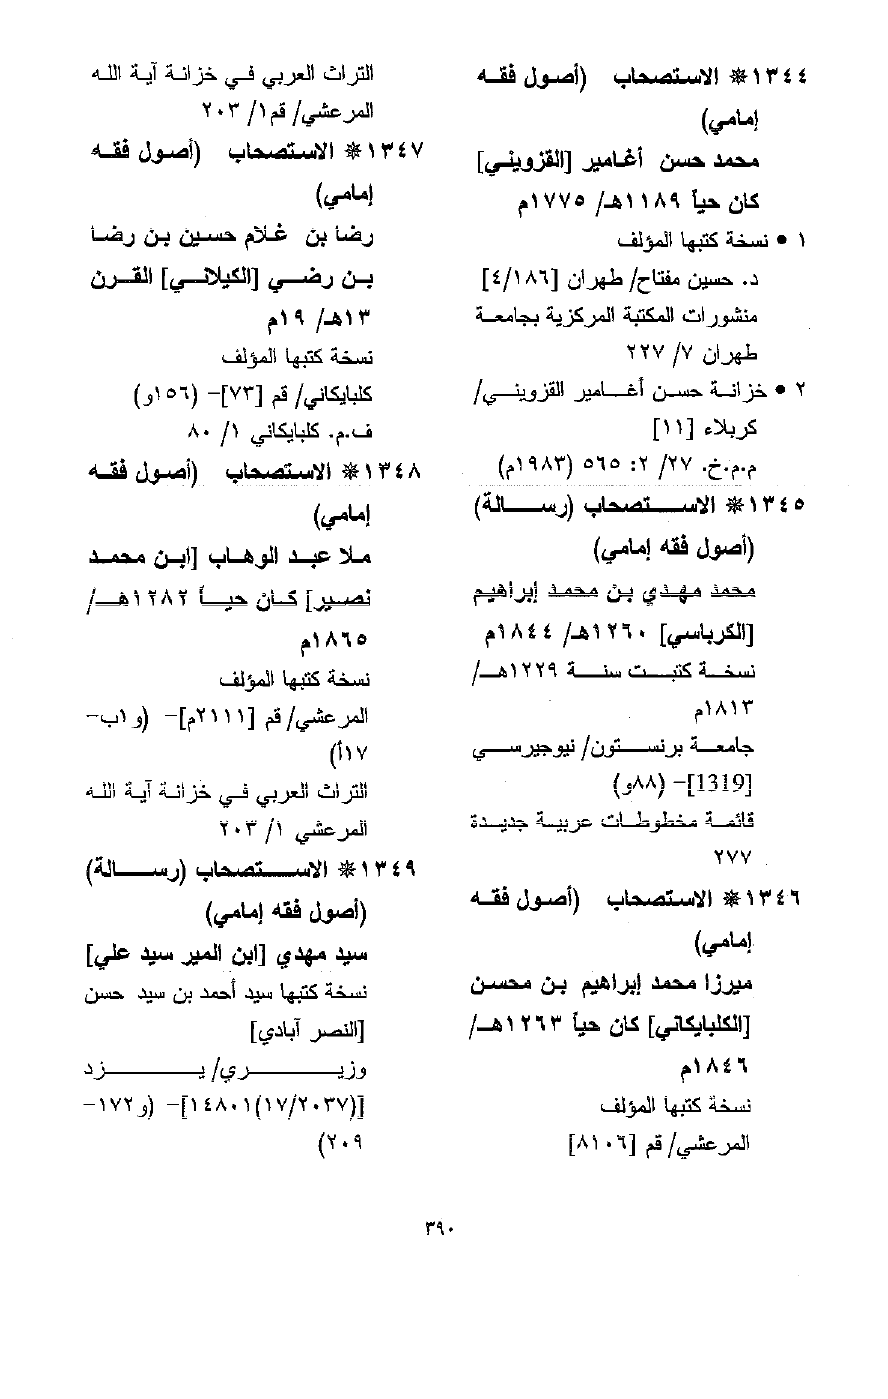 ١٣٤٤ ❋ الاستصحاب (أصول فقه
إمامي)
محمد حسن أغامير [القزويني]
كان حياً ١١٨٩هـ/ ١٧٧٥م
١ • نسخة كتبها المؤلف
د. حسين مفتاح/ طهران [٤/١٨٦]
منشورات المكتبة المركزية بجامعة
طهران ٧/ ٢٢٧
٢ • خزانة حسن أغامير القزويني/
كربلاء [١١]
م.م.خ. ٢٧/ ٢: ٥٦٥ (١٩٨٣م)
١٣٤٥ ❋ الاستصحاب (رسالة)
(أصول فقه إمامي)
محمد مهدي بن محمد إبراهيم
[الكرباسي] ١٢٦٠هـ/ ١٨٤٤م
نسخة كتبت سنة ١٢٢٩هـ/
١٨١٣م
جامعة برنستون/ نيوجيرسي
[1319]– (٨٨و)
قائمة مخطوطات عربية جديدة
٢٧٧
١٣٤٦ ❋ الاستصحاب (أصول فقه
إمامي)
ميرزا محمد إبراهيم بن محسن
[الكلبايكاني] كان حياً ١٢٦٣هـ/
١٨٤٦م
نسخة كتبها المؤلف
المرعشي/ قم [٨١٠٦]
التراث العربي في خزانة آية الله
المرعشي/ قم١/ ٢٠٣
١٣٤٧ ❋ الاستصحاب (أصول فقه
إمامي)
رضا بن غلام حسين بن رضا
بن رضي [الكيلاني] القرن
١٣هـ/ ١٩م
نسخة كتبها المؤلف
كلبايكاني/ قم [٧٣]– (١٥٦و)
ف.م. كلبايكاني ١/ ٨٠
١٣٤٨ ❋ الاستصحاب (أصول فقه
إمامي)
ملا عبد الوهاب [ابن محمد
نصير] كان حياً ١٢٨٢هـ/
١٨٦٥م
نسخة كتبها المؤلف
المرعشي/ قم [٢١١١م]– (و١ب–
١٧أ)
التراث العربي في خزانة آية الله
المرعشي ١/ ٢٠٣
١٣٤٩ ❋ الاستصحاب (رسالة)
(أصول فقه إمامي)
سيد مهدي [ابن المير سيد علي]
نسخة كتبها سيد أحمد بن سيد حسن
[النصر آبادي]
وزيري/ يزد
[(١٧/٢٠٣٧)١٤٨٠١]– (و١٧٢–
٢٠٩)
٣٩٠